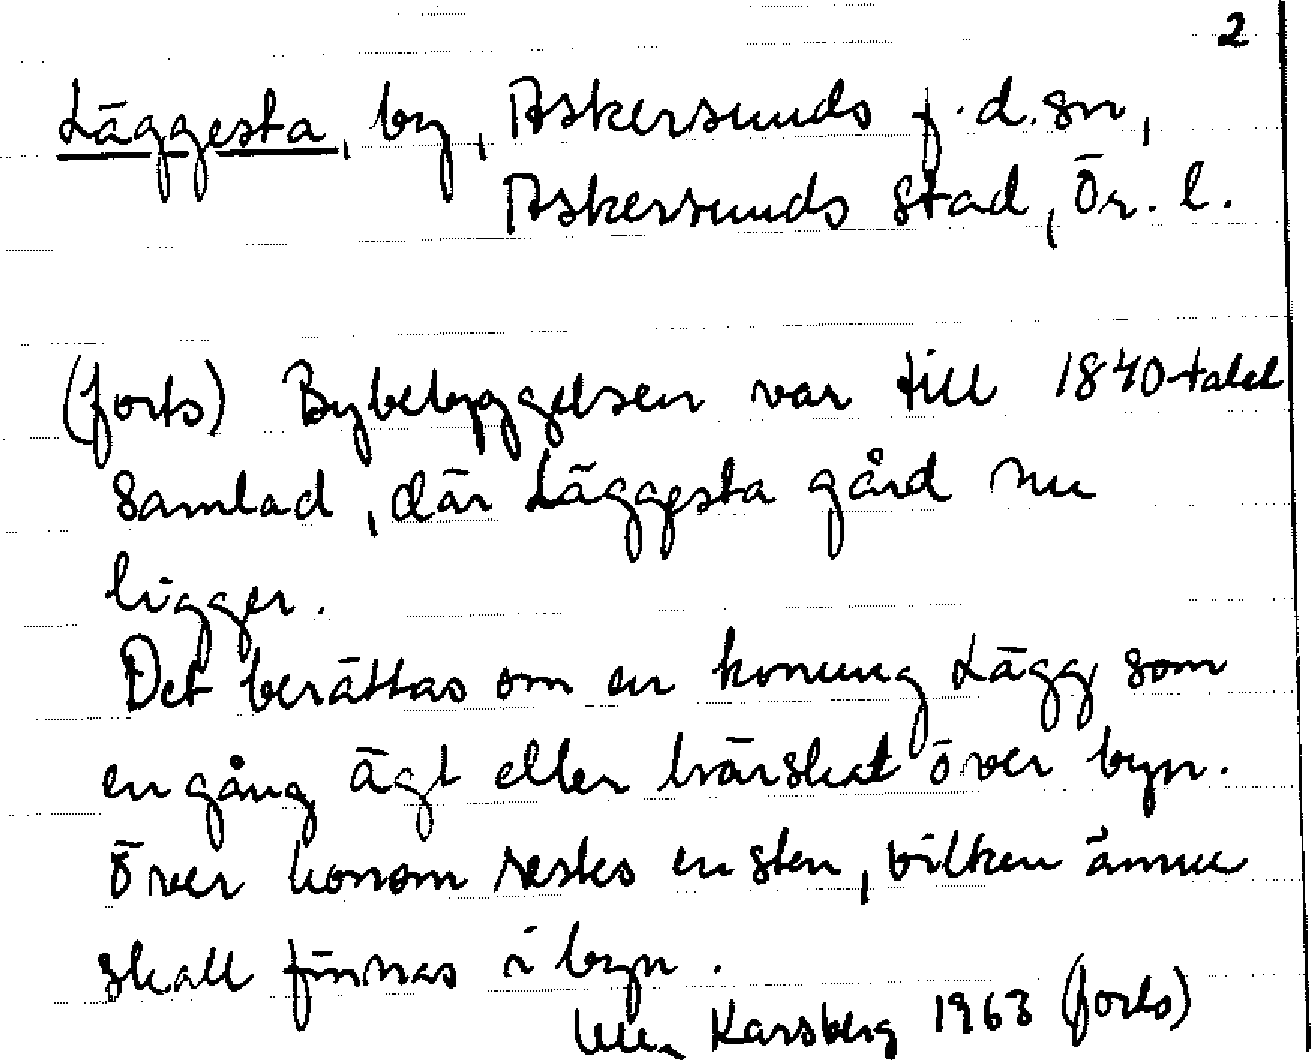 2
Läggesta, by, Askersunds f.d. sn,
Askersunds stad, Ör. l.
(forts) Bybebyggelsen var till 1840-talet
samlad, där Läggesta gård nu
ligger.
Det berättas om en konung Lägg som
en gång ägt eller härskat över byn.
Över honom restes en sten, vilken ännu
skall finnas i byn.
Karsberg 1963 (forts)